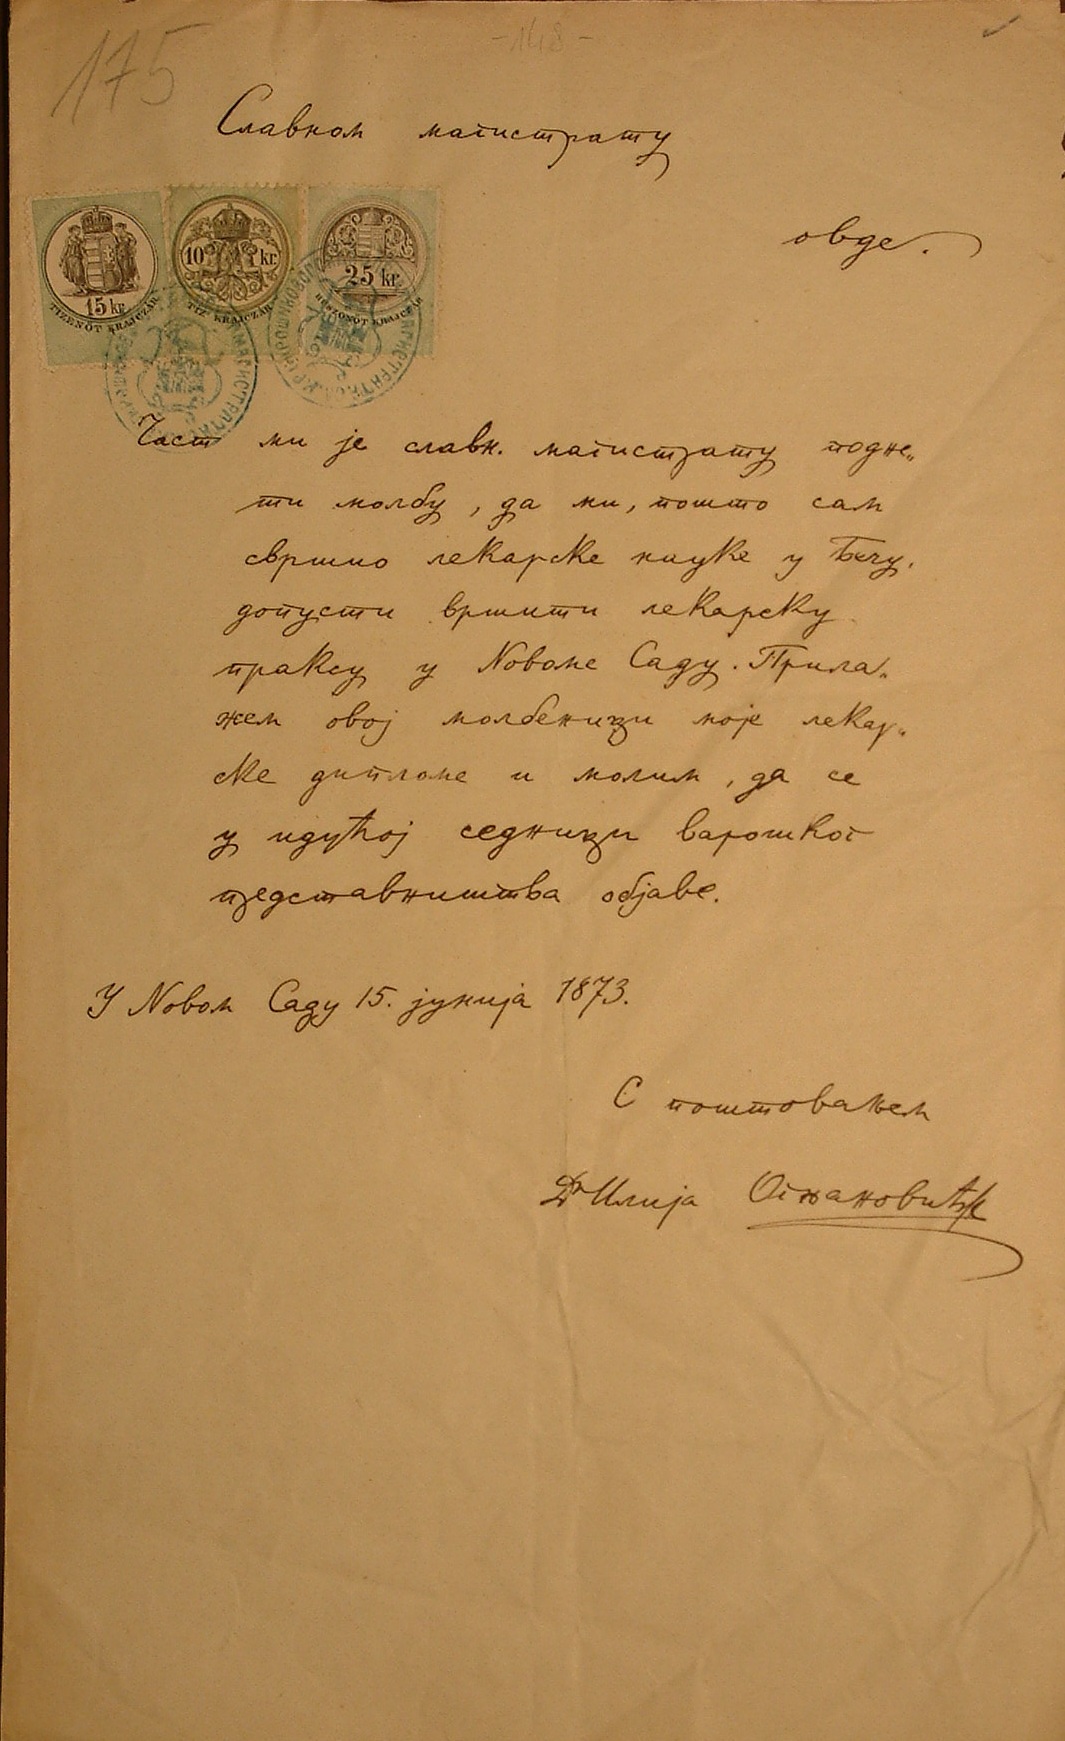 175
-148-
Славном магистрату
овде.
15 kr.
TIZENÖT KRAJCZÁR
10 kr.
TIZ KRAJCZÁR
25 kr.
HUSZONÖT KRAJCZÁR
Част ми је славн. магистрату подне„
ти молбу, да ми, пошто сам
свршио лекарске науке у Бечу,
допусти вршити лекарску
праксу у Новоме Саду. Прила„
жем овој молбеници моје лекар„
ске дипломе и молим, да се
у идућој седници варошког
представништва објаве.
У Новом Саду 15. јунија 1873.
С поштовањем
Др Илија Огњановић